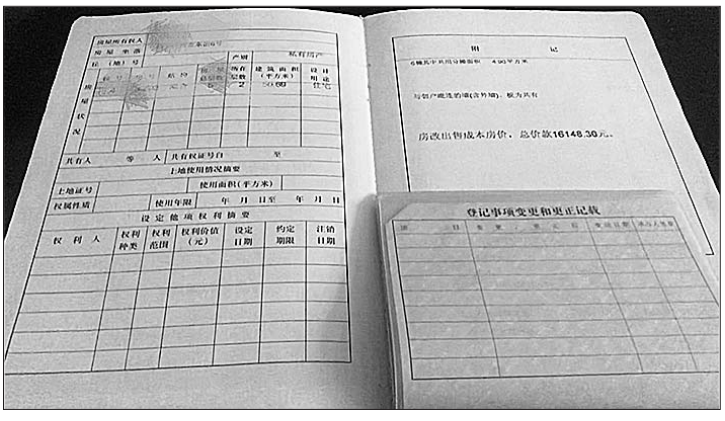 房屋所有权人
房屋坐落
丘（地）号
产别
私有房产
房屋状况
幢号
房号
结构
房屋总层数
所在层数
建筑面积（平方米）
设计用途
6
2
住宅
共有人 等 人 共有权证号自 至
土地使用情况摘要
土地证号 使用面积（平方米）
权属性质 使用年限 年 月 日至 年 月 日
设定他项权利摘要
权利人 权利种类 权利范围 权利价值（元） 设定日期 约定期限 注销日期
附 记
4.90平方米
与邻户毗连的墙(含外墙)，权为共有
房改出售成本房价，总价款16148.30元。
登记事项变更和更正记载